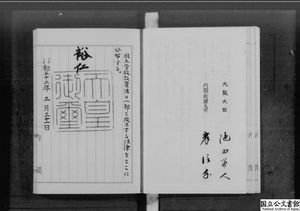 国立学校設置法の一部を改正する法律をここに
公布する。
裕仁
天皇
御璽
昭和三十三年三月三十一日
内閣総理大臣
岸信介
大蔵大臣
国立公文書館
National Archives of Japan